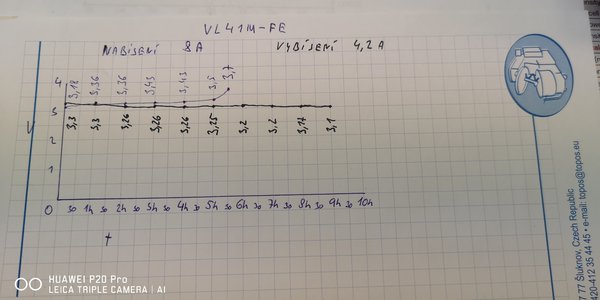 VL41M-FE
NABÍJENÍ 8A
VYBÍJENÍ 4,2A
4 3,18 3,36 3,36 3,43 3,43 3,5 3,7
3 3,3 3,3 3,26 3,26 3,26 3,25 3,2 3,2 3,17 3,1
V
2
1
0 30 1h 30 2h 30 3h 30 4h 30 5h 30 6h 30 7h 30 8h 30 9h 30 10h
t
77 Šluknov, Czech Republic
420-412 35 44 45 • e-mail: topos@topos.eu
HUAWEI P20 Pro
LEICA TRIPLE CAMERA | AI